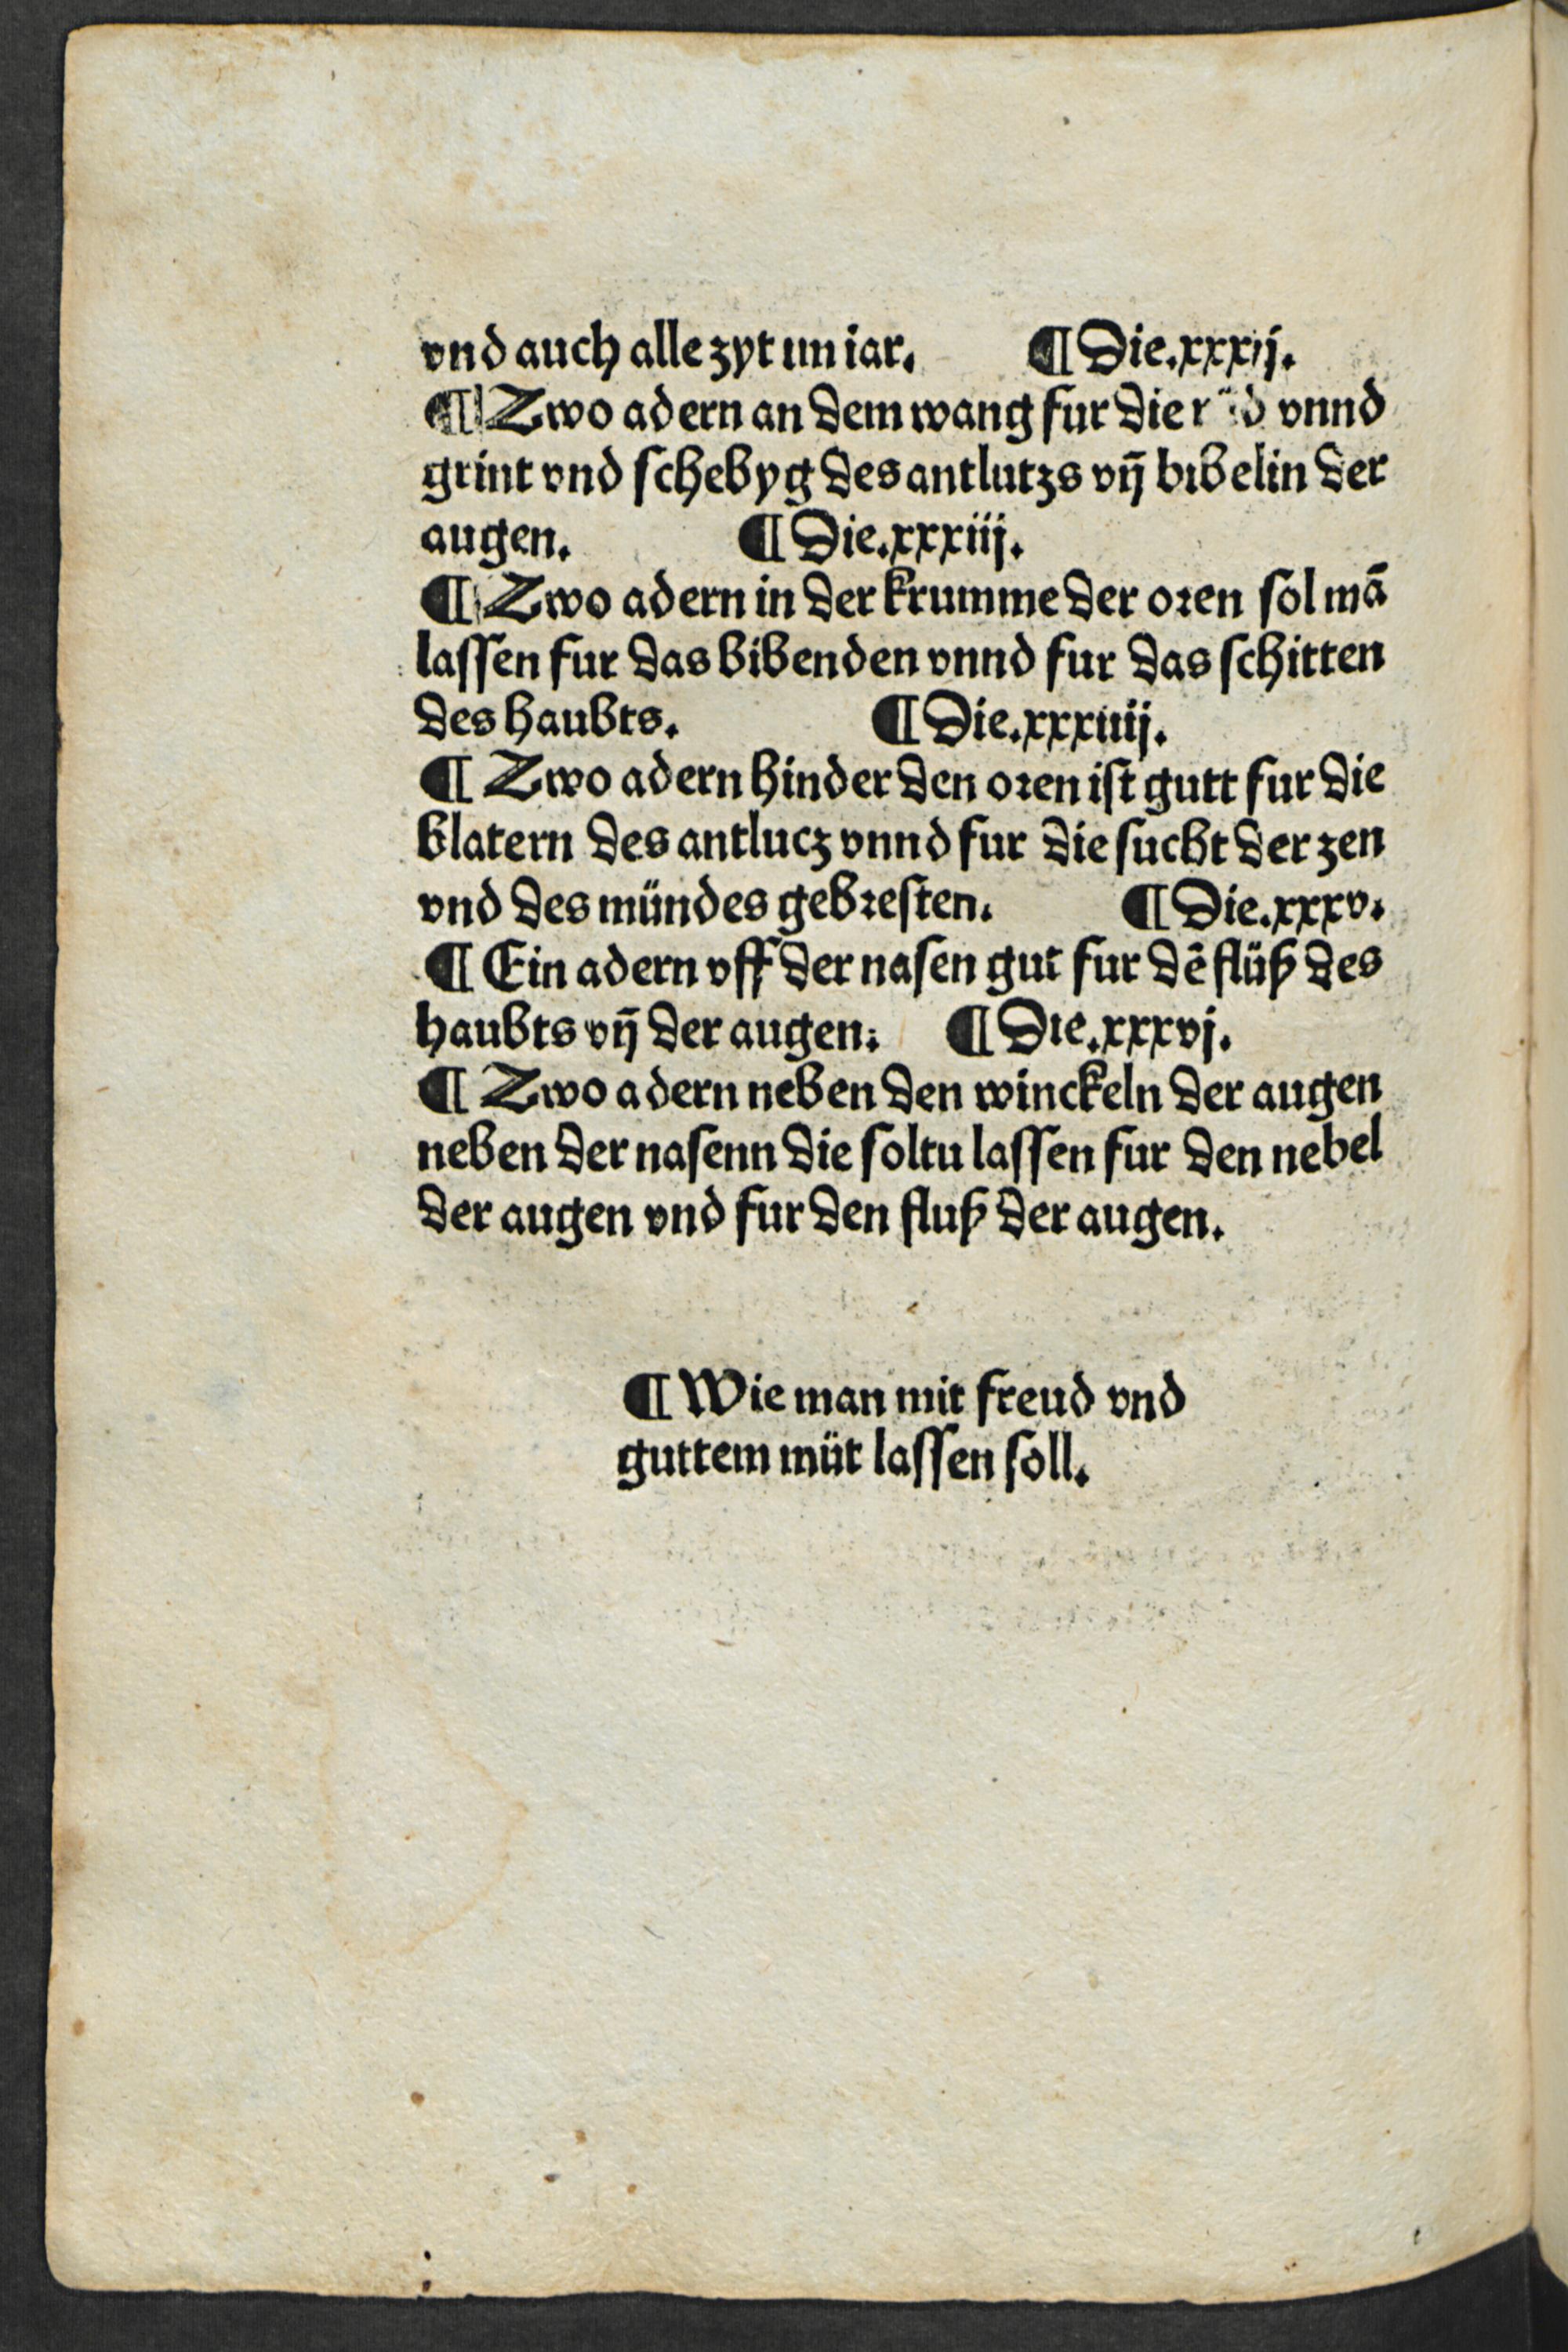 vnd auch alle zyt im iar. ¶ Die.xxxij.
¶ Zwo adern an dem wang fur die vnnd
grint vnd schebyg des antlutzs vn̄ bibelin der
augen. ¶ Die.xxxiij.
¶ Zwo adern in der krumme der oren sol mā
lassen fur das bibenden vnnd fur das schitten
des haubts. ¶ Die.xxxiiij.
¶ Zwo adern hinder den oren ist gutt fur die
blatern des antlucz vnnd fur die sucht der zen
vnd des mündes gebresten. ¶ Die.xxxv.
¶ Ein adern vff der nasen gut fur dē flüß des
haubts vn̄ der augen: ¶ Die.xxxvj.
¶ Zwo adern neben den winckeln der augen
neben der nasenn die soltu lassen fur den nebel
der augen vnd fur den fluß der augen.
¶ Wie man mit freud vnd
guttem müt lassen soll.